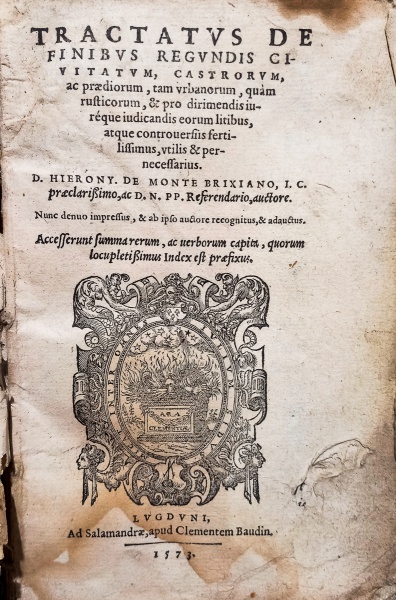 TRACTATVS DE
FINIBVS REGVNDIS CI-
VITATVM, CASTRORVM,
ac prædiorum, tam vrbanorum, quàm
rusticorum, & pro dirimendis iu-
réque iudicandis eorum litibus,
atque controuersiis ferti-
lissimus, vtilis & per-
necessarius.
D. HIERONY. DE MONTE BRIXIANO, I. C.
præclarißimo, ac D. N. PP. Referendario, auctore.
Nunc denuo impressus, & ab ipso auctore recognitus, & adauctus.
Accesserunt summa rerum, ac uerborum capita, quorum
locupletißimus Index est præfixus.
ARA
CLEMENTIÆ
LVGDVNI,
Ad Salamandræ, apud Clementem Baudin.
1573.